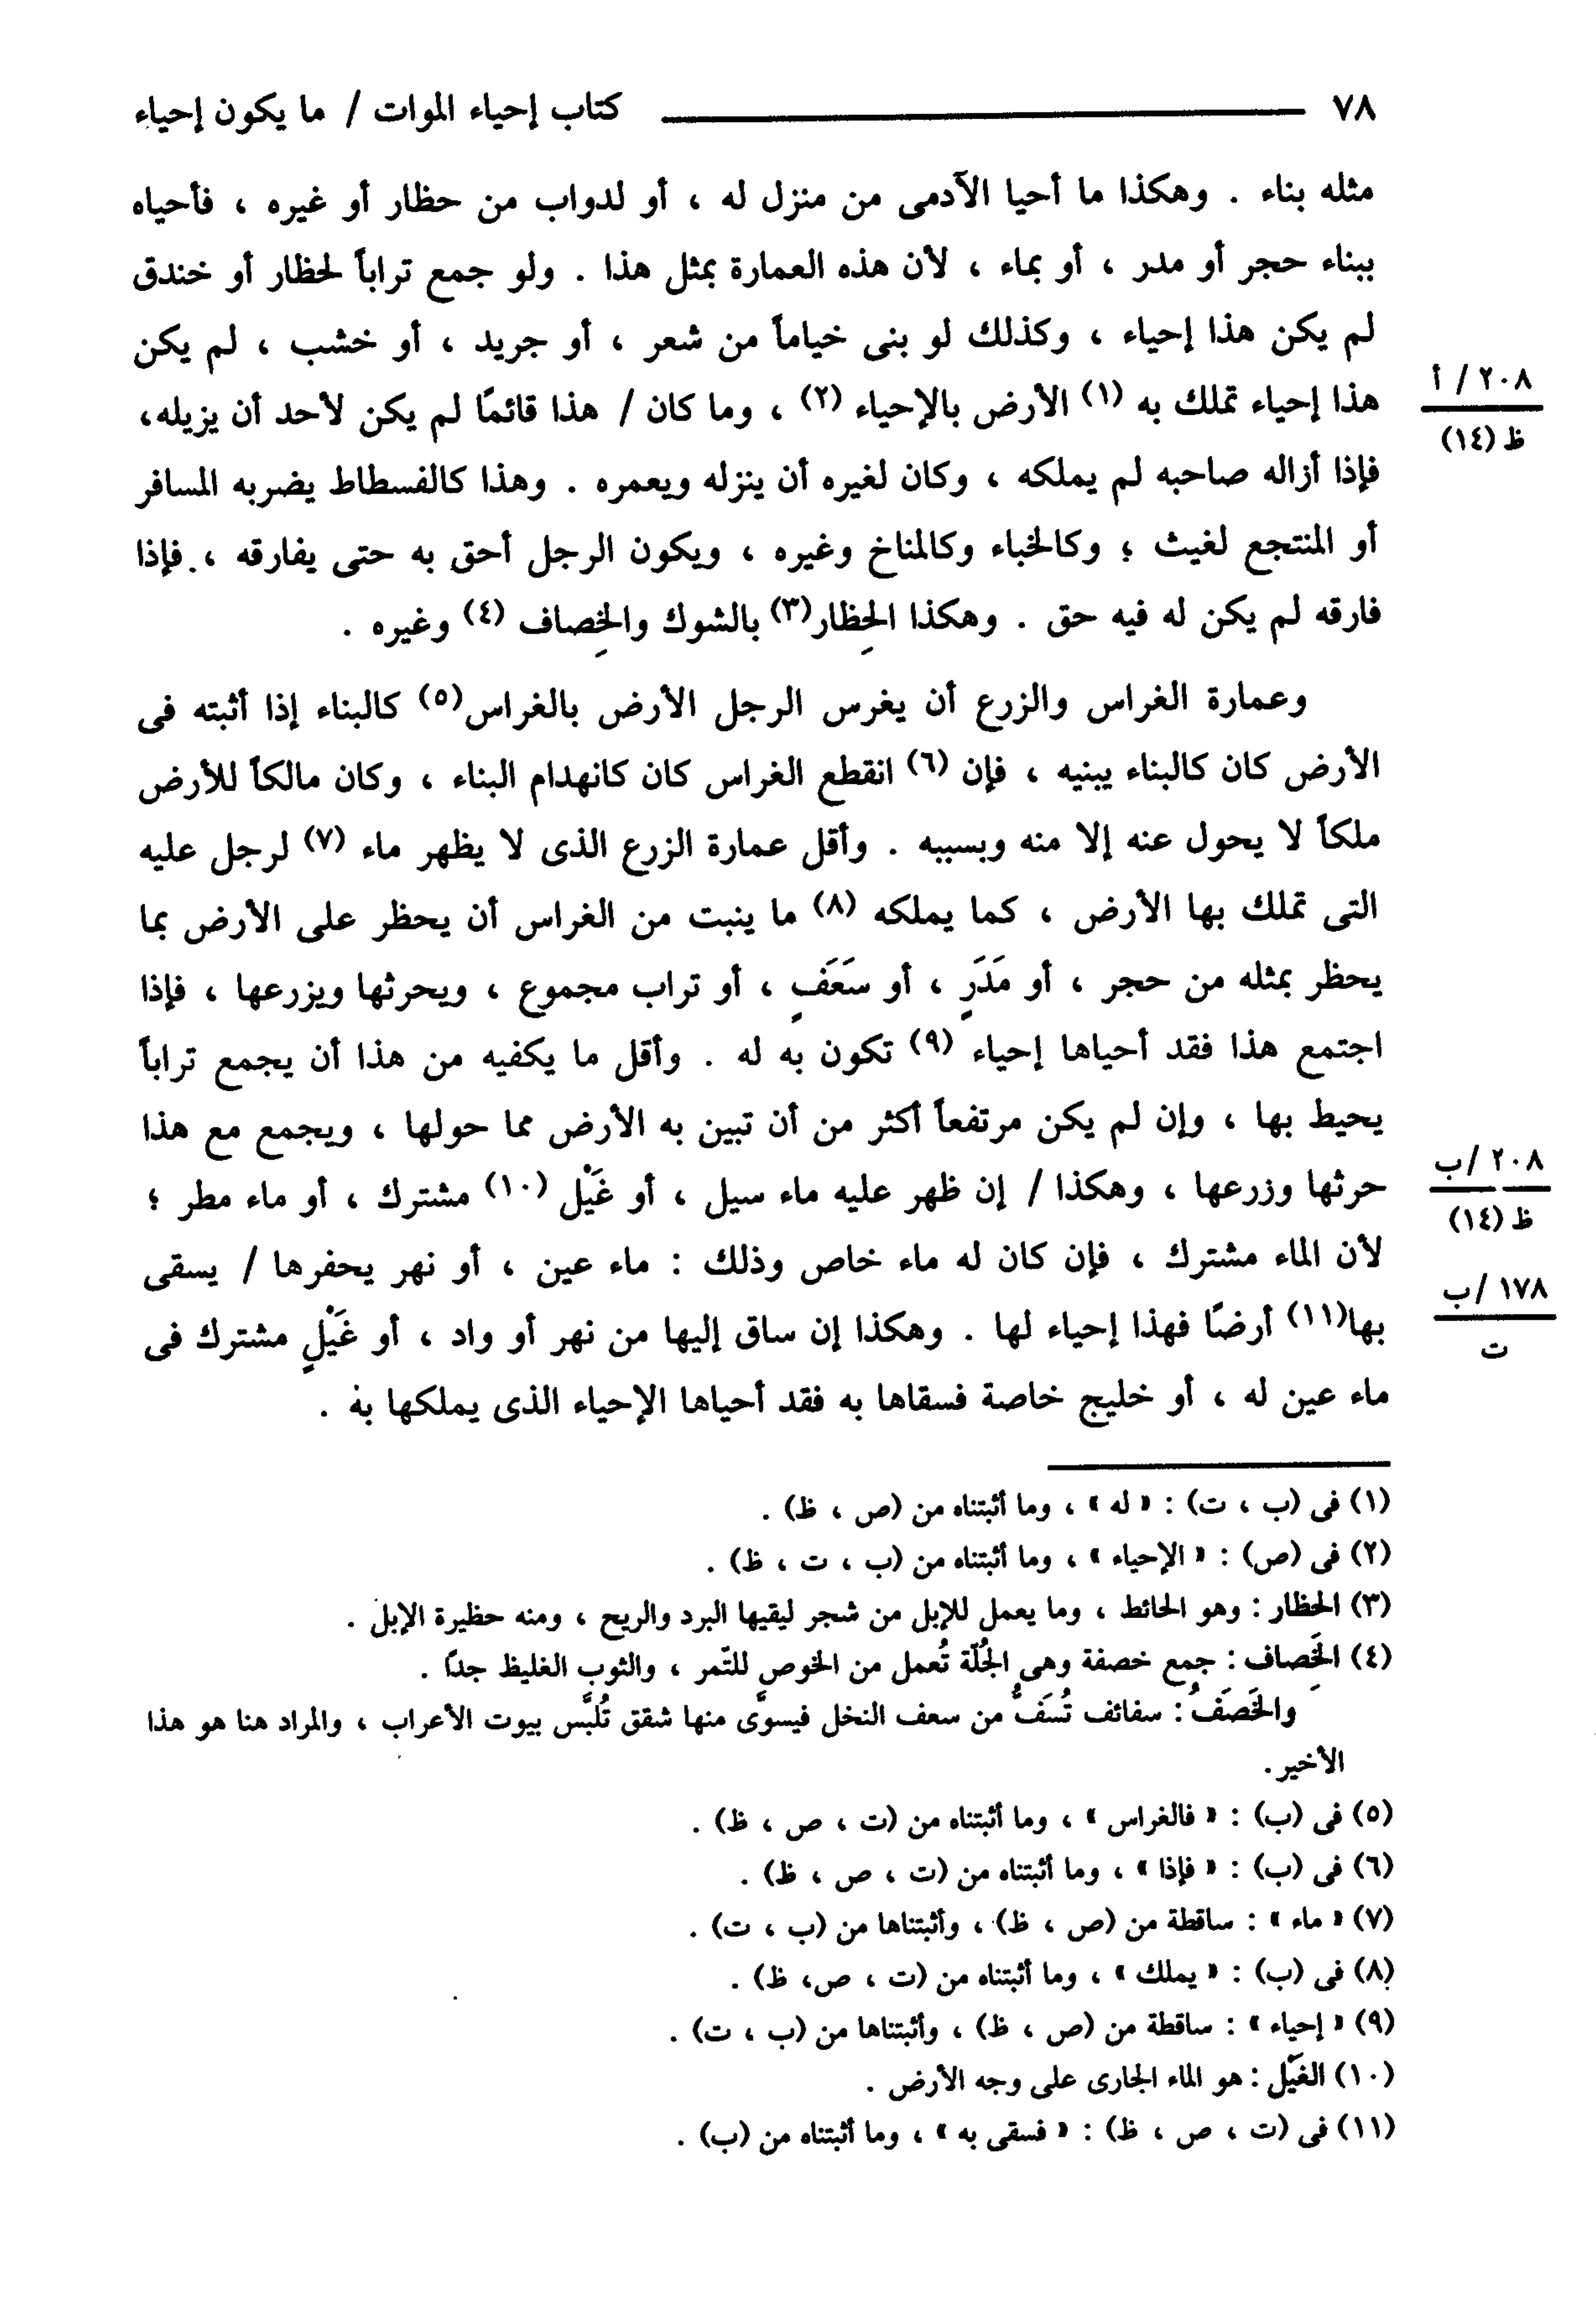 ٧٨ كتاب إحياء الموات / ما يكون إحياء
مثله بناء . وهكذا ما أحيا الآدمى من منزل له ، أو لدواب من حظار أو غيره ، فأحياه
ببناء حجر أو مدر ، أو بماء ، لأن هذه العمارة بمثل هذا . ولو جمع تراباً لحظار أو خندق
لم يكن هذا إحياء ، وكذلك لو بنى خياماً من شعر ، أو جريد ، أو خشب ، لم يكن
هذا إحياء تملك به (١) الأرض بالإحياء (٢) ، وما كان / هذا قائمًا لم يكن لأحد أن يزيله،
٢٠٨ / أ
ظ (١٤)
فإذا أزاله صاحبه لم يملكه ، وكان لغيره أن ينزله ويعمره . وهذا كالفسطاط يضربه المسافر
أو المنتجع لغيث ؛ وكالخباء وكالمناخ وغيره ، ويكون الرجل أحق به حتى يفارقه ، فإذا
فارقه لم يكن له فيه حق . وهكذا الحِظار(٣) بالشوك والخِصاف (٤) وغيره .
وعمارة الغراس والزرع أن يغرس الرجل الأرض بالغراس(٥) كالبناء إذا أثبته فى
الأرض كان كالبناء يبنيه ، فإن (٦) انقطع الغراس كان كانهدام البناء ، وكان مالكاً للأرض
ملكاً لا يحول عنه إلا منه وبسببه . وأقل عمارة الزرع الذى لا يظهر ماء (٧) لرجل عليه
التى تملك بها الأرض ، كما يملكه (٨) ما ينبت من الغراس أن يحظر على الأرض بما
يحظر بمثله من حجر ، أو مَدَرٍ ، أو سَعَفٍ ، أو تراب مجموع ، ويحرثها ويزرعها ، فإذا
اجتمع هذا فقد أحياها إحياء (٩) تكون به له . وأقل ما يكفيه من هذا أن يجمع تراباً
يحيط بها ، وإن لم يكن مرتفعاً أكثر من أن تبين به الأرض مما حولها ، ويجمع مع هذا
حرثها وزرعها ، وهكذا / إن ظهر عليه ماء سيل ، أو غَيْل (١٠) مشترك ، أو ماء مطر ؛
٢٠٨ /ب
ظ (١٤)
لأن الماء مشترك ، فإن كان له ماء خاص وذلك : ماء عين ، أو نهر يحفرها / يسقى
١٧٨ /ب
ت
بها(١١) أرضًا فهذا إحياء لها . وهكذا إن ساق إليها من نهر أو واد ، أو غَيْلٍ مشترك فى
ماء عين له ، أو خليج خاصة فسقاها به فقد أحياها الإحياء الذى يملكها به .
(١) فى (ب ، ت) : « له » ، وما أثبتناه من (ص ، ظ) .
(٢) فى (ص) : « الإحياء » ، وما أثبتناه من (ب ، ت ، ظ) .
(٣) الحظار : وهو الحائط ، وما يعمل للإبل من شجر ليقيها البرد والريح ، ومنه حظيرة الإبل .
(٤) الخِصاف : جمع خصفة وهى الجُلّة تُعمل من الخوص للتّمر ، والثوب الغليظ جداً .
والخَصَفُ : سفائف تُسَفُّ من سعف النخل فيسوَّى منها شقق تُلبَّس بيوت الأعراب ، والمراد هنا هو هذا
الأخير.
(٥) فى (ب) : « فالغراس » ، وما أثبتناه من (ت ، ص ، ظ) .
(٦) فى (ب) : « فإذا » ، وما أثبتناه من (ت ، ص ، ظ) .
(٧) « ماء » : ساقطة من (ص ، ظ) ، وأثبتناها من (ب ، ت) .
(٨) فى (ب) : « يملك » ، وما أثبتناه من (ت ، ص، ظ) .
(٩) « إحياء » : ساقطة من (ص ، ظ) ، وأثبتناها من (ب ، ت) .
(١٠) الغَيْل : هو الماء الجارى على وجه الأرض .
(١١) فى (ت ، ص ، ظ) : « فسقى به » ، وما أثبتناه من (ب) .